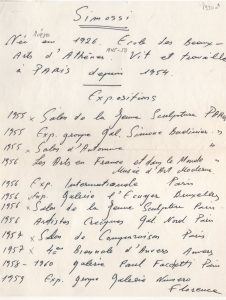 1930
Simossi
Née en 1926. Ecole des Beaux-
Arts d'Athènes. Vit et travaille
à PARIS depuis 1954.
Expositions
1955 x Salon de la Jeune Sculpture PARIS
1955 Exp. groupe Gal. Simone Badinier. "
1955 x Salon d'Automne "
1956 Les Arts en France et dans le Monde "
Musée d'Art Moderne
1956 Exp. Internationale Paris
1956 Exp. Galerie l'Ecuyer Bruxelles
1956 x Salon de la Jeune Sculpture Paris
1956 Artistes Grecques Gal. Nord Paris
1957 x Salon de Comparaisons Paris
1957 x Biennale d'Anvers Anvers
1958 - 1960 Galerie Paul Facchetti Paris
1959 Exp. groupe Galerie Numero
Florence